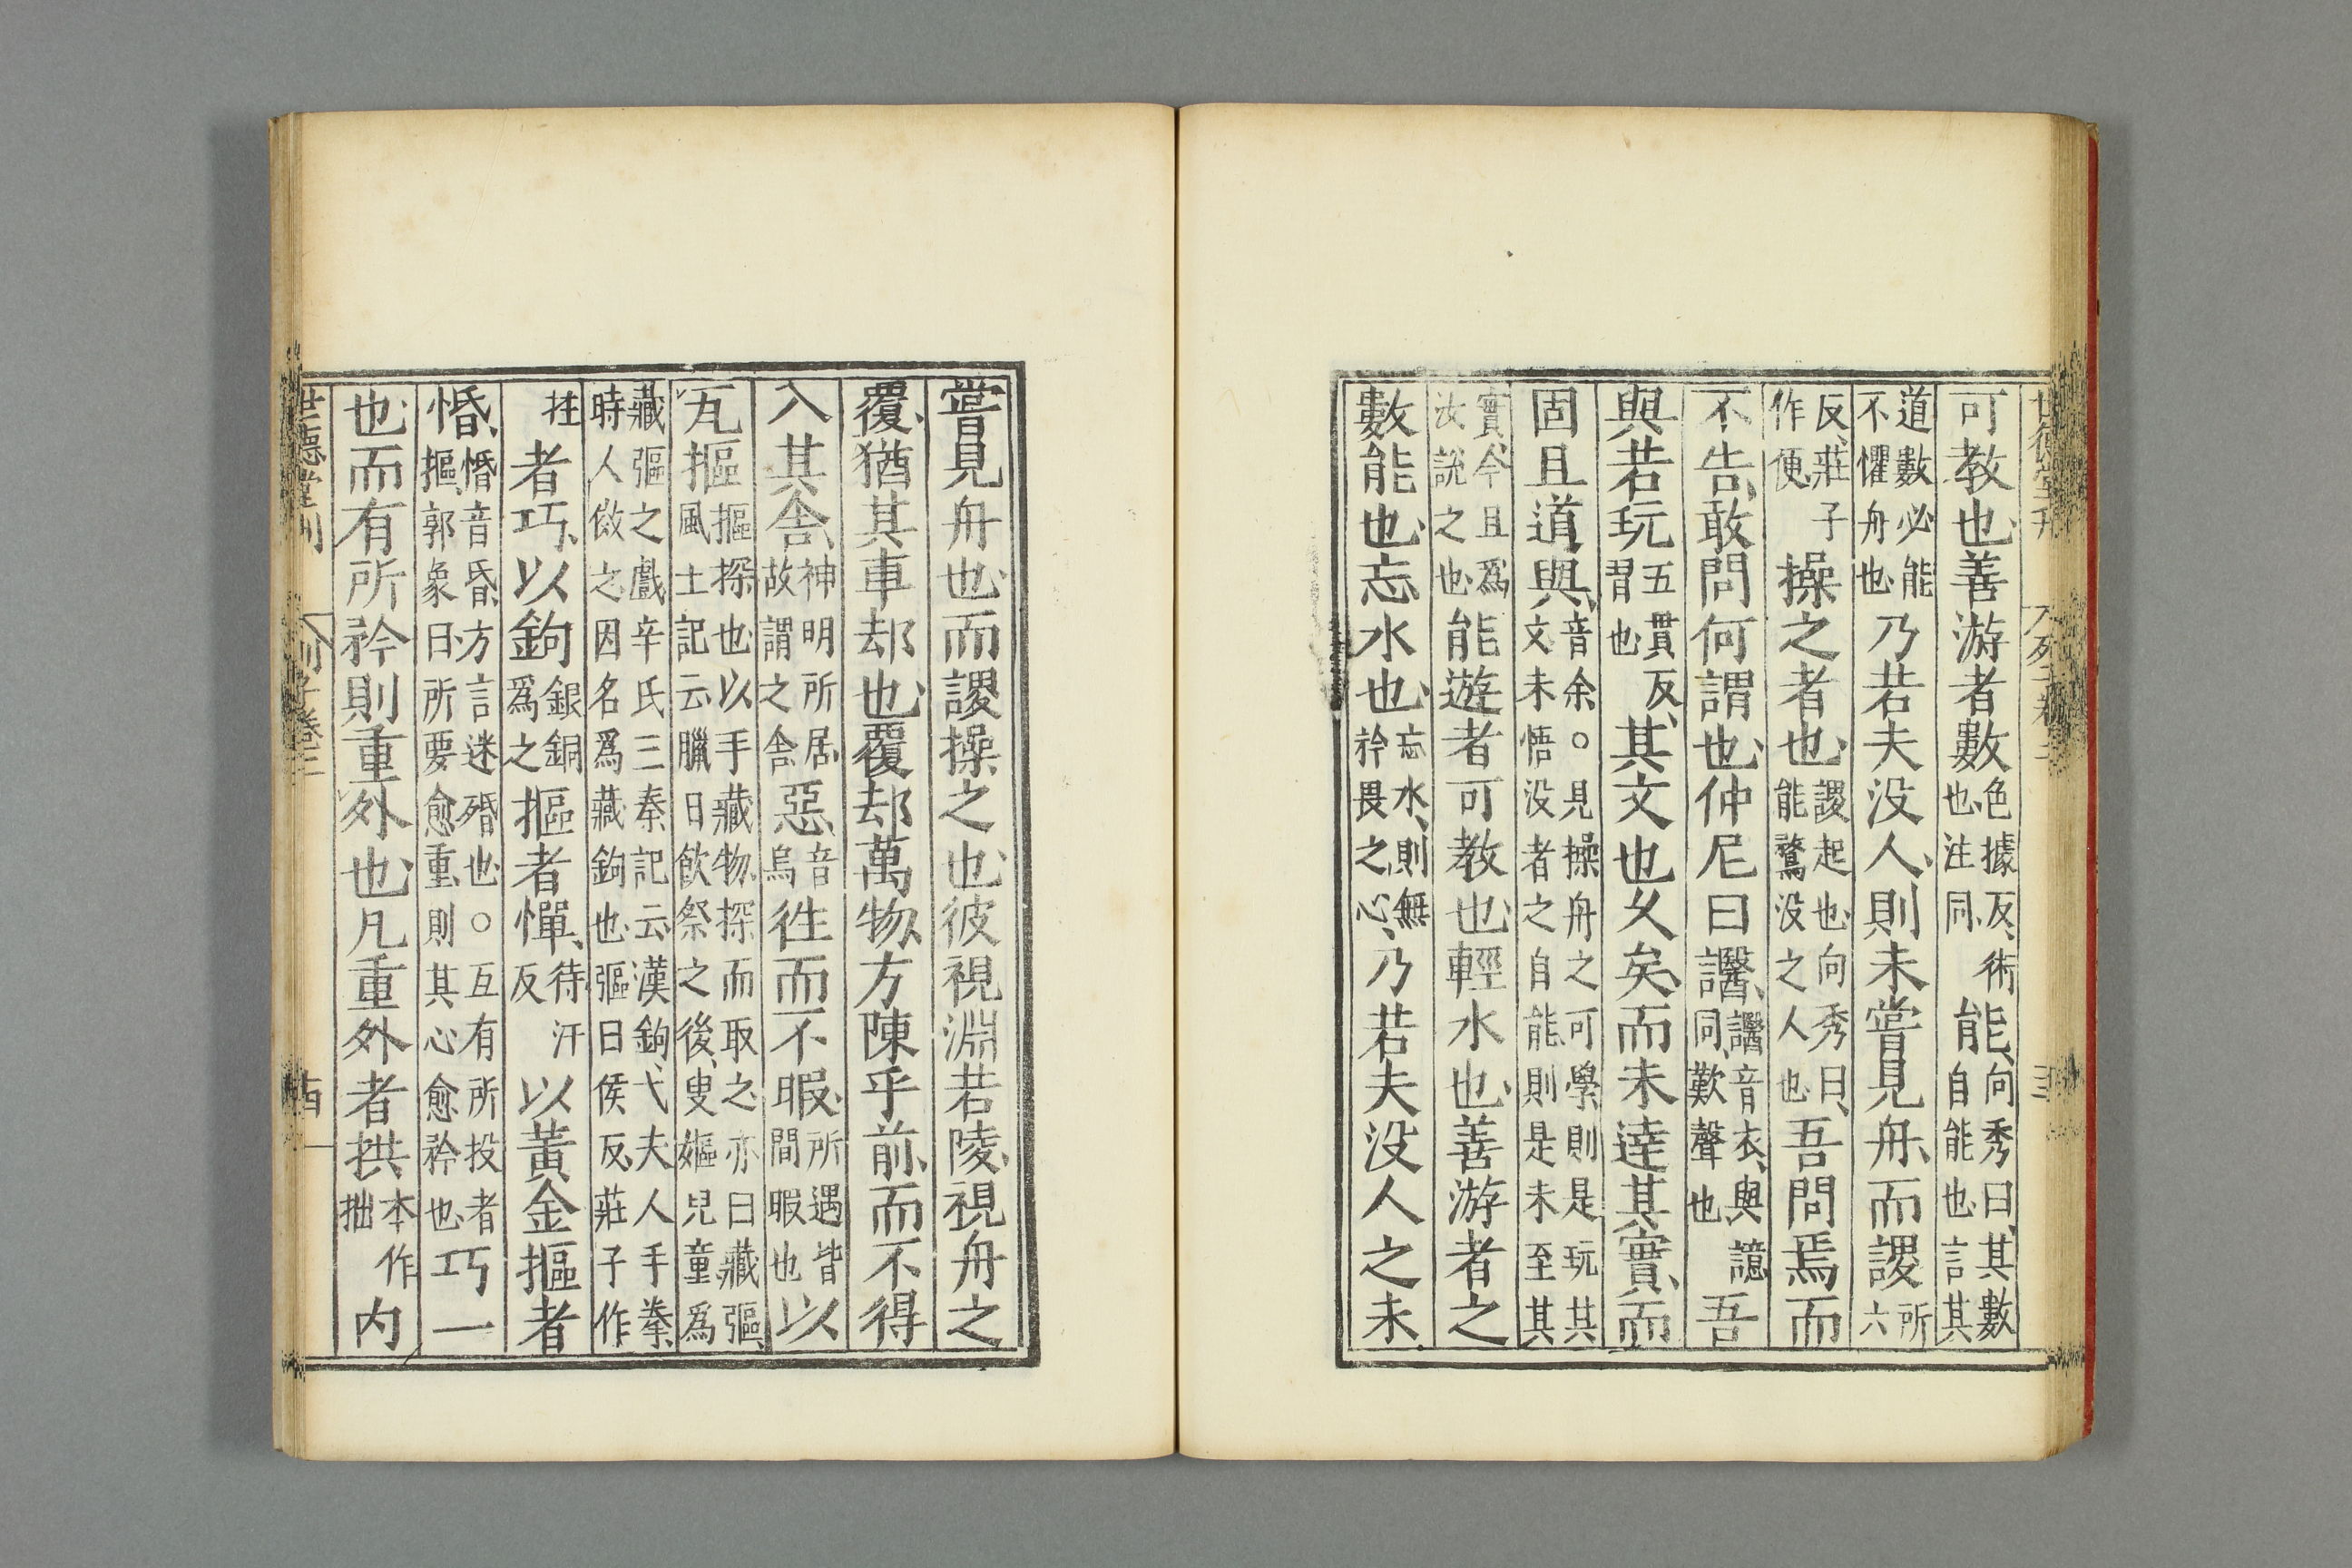 可教也善游者數色據反術也注同能向秀曰其數自能也言其
道數必能不懼舟也乃若夫没人則未嘗見舟而謖所六
反莊子作便操之者也謖起也向秀曰能鶩没之人也吾問焉而
不告敢問何謂也仲尼曰譩譩音衣與譩同歎聲也吾
與若玩五貫反習也其文也久矣而未達其實而
固且道與音余○見操舟之可學則是玩其文未悟没者之自能則是未至其
實今且爲汝說之也能遊者可教也輕水也善游者之
數能也忘水也忘水則無矜畏之心乃若夫没人之未
嘗見舟也而謖操之也彼視淵若陵視舟之
覆猶其車却也覆却萬物方陳乎前而不得
入其舍神明所居故謂之舍惡音烏徃而不暇所遇皆間暇也以
瓦摳摳探也以手藏物探而取之亦曰藏彄風土記云臘日飲祭之後叟嫗兒童爲
藏彄之戲辛氏三秦記云漢鉤弋夫人手拳時人傚之因名爲藏鉤也彄曰侯反莊子作
拄者巧以鉤銀銅爲之摳者憚待汗反以黄金摳者
惛惛音昏方言迷殙也○互有所投者摳郭象曰所要愈重則其心愈矜也巧一
也而有所矜則重外也凡重外者拱本作拙内
世德堂刊
列子卷二